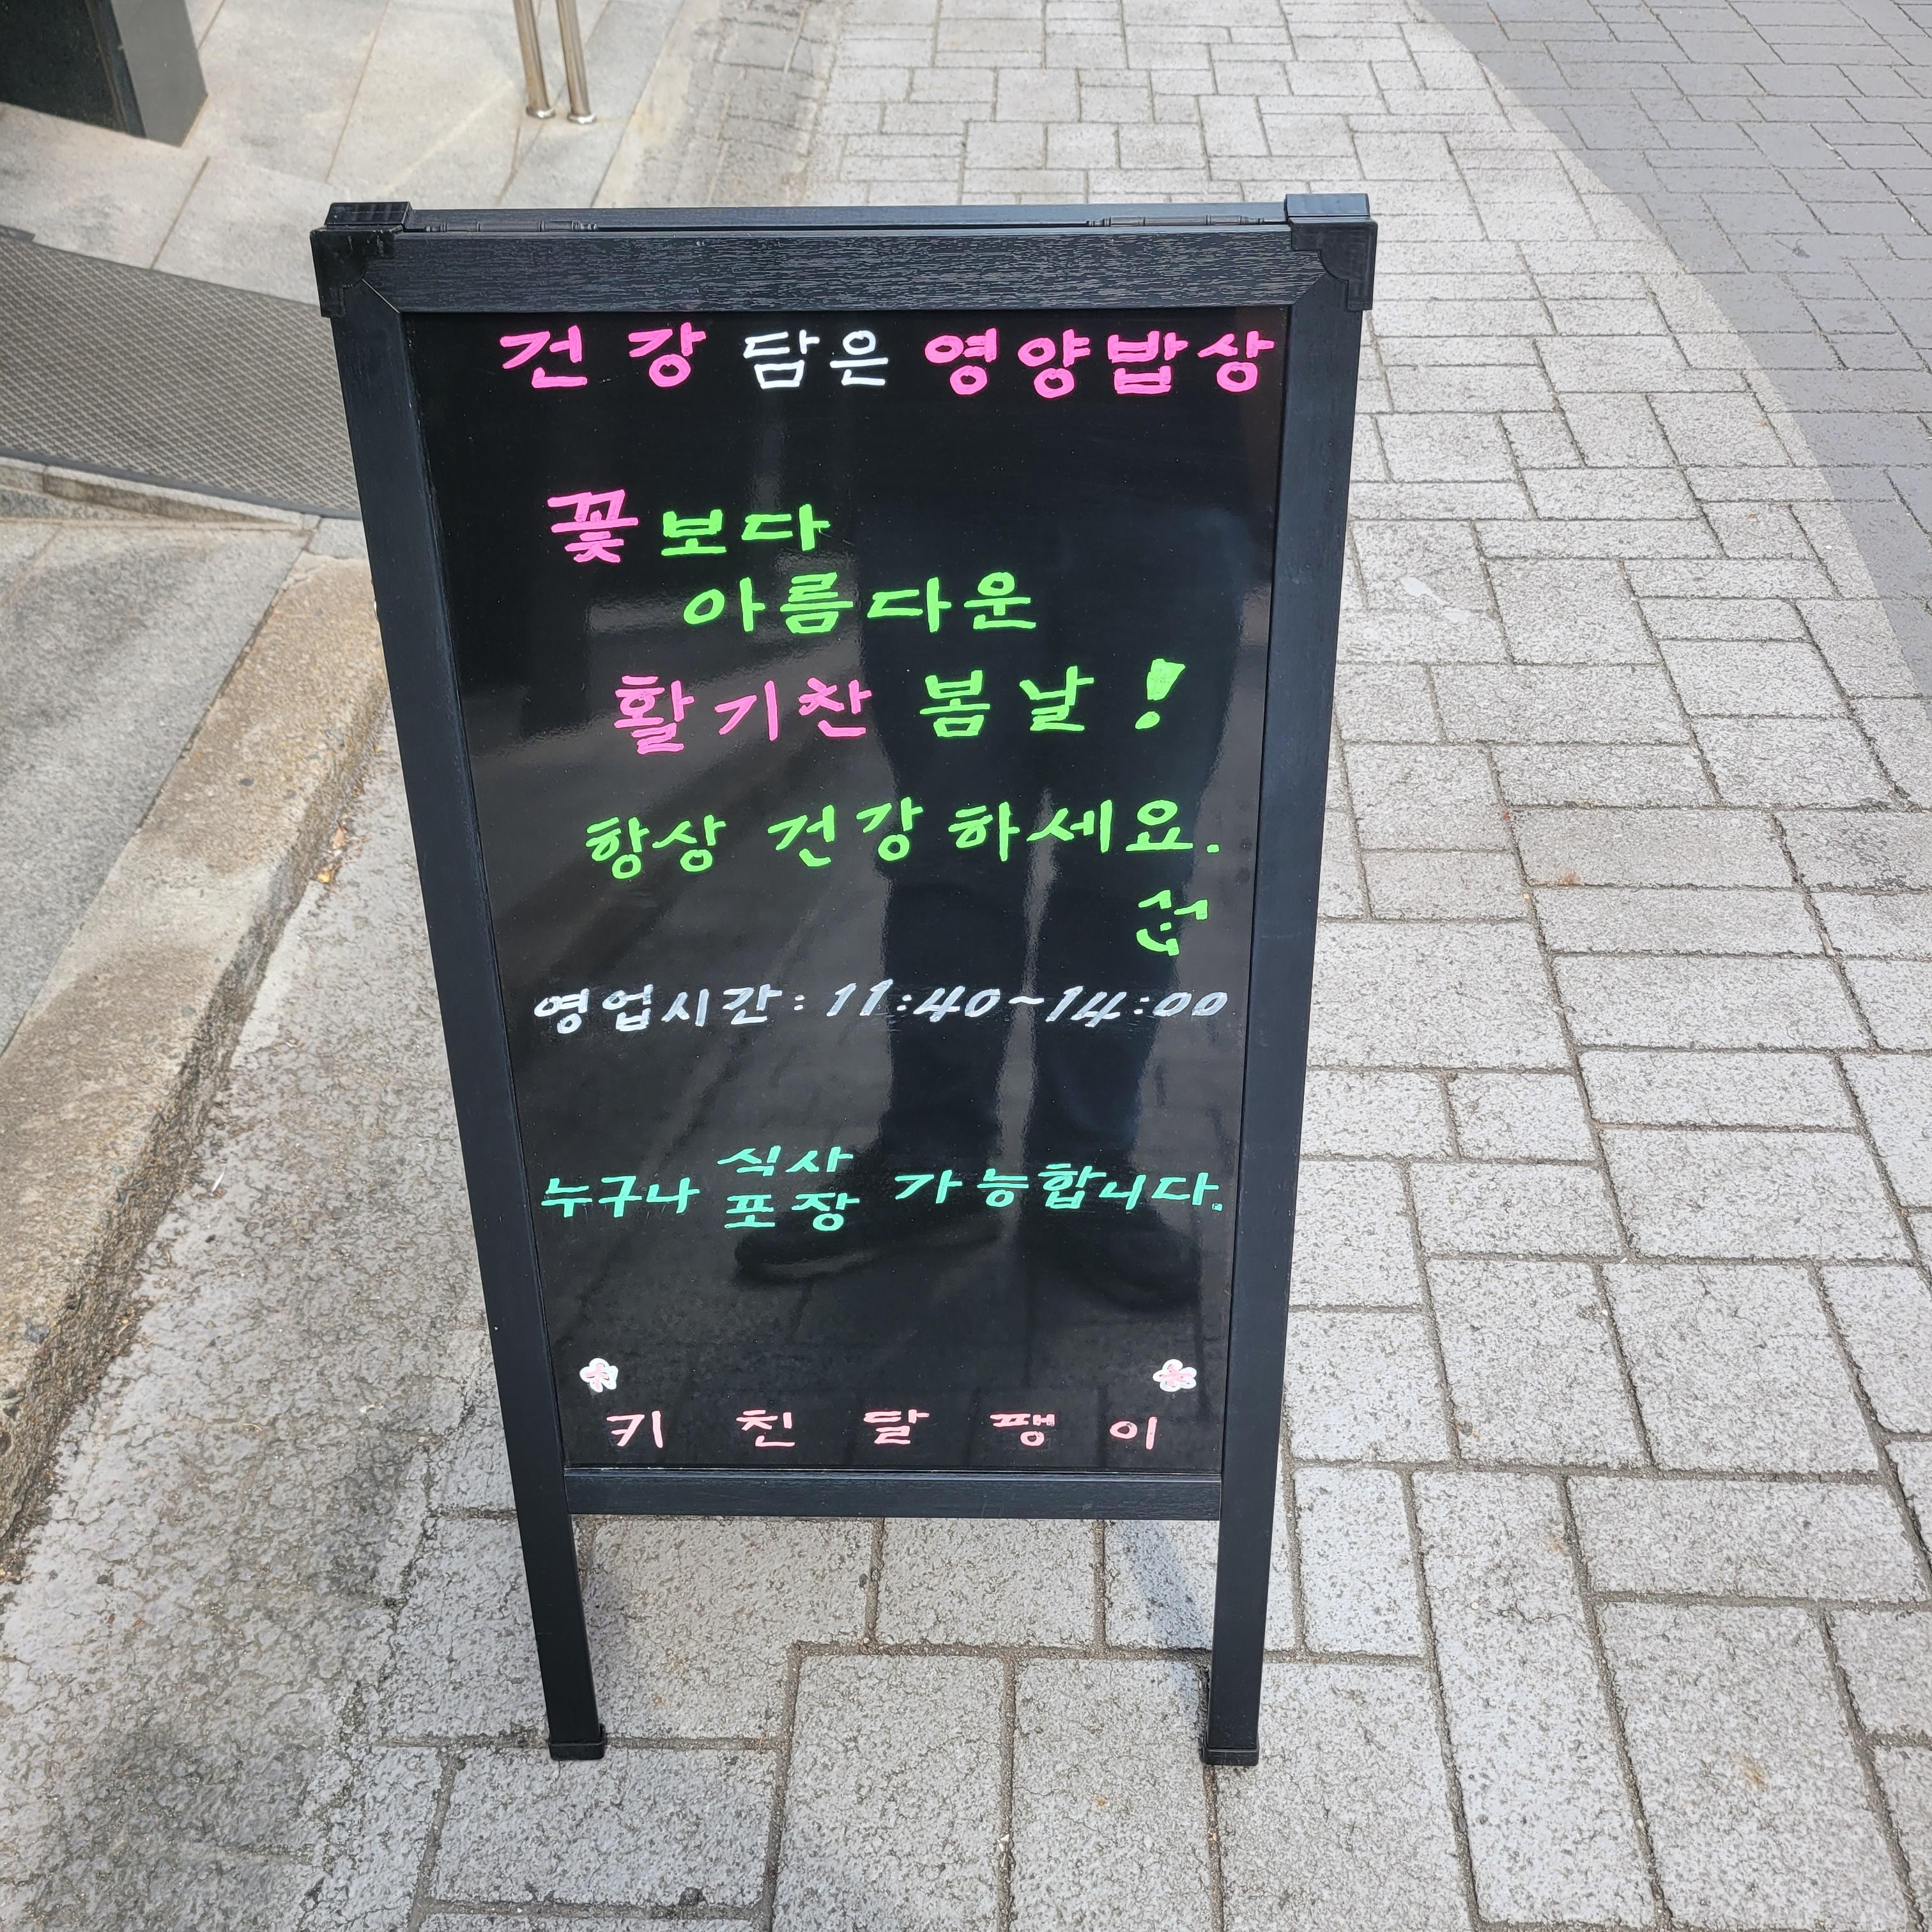 건강 담은 영양밥상
꽃보다
아름다운
활기찬 봄날!
항상 건강하세요.
영업시간: 11:40~14:00
누구나 식사 포장 가능합니다.
키친달팽이